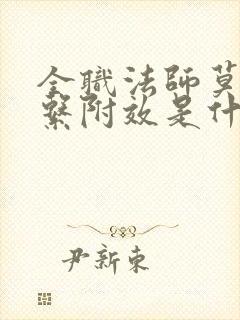 全職法師莫
繫附效是什
尹新東